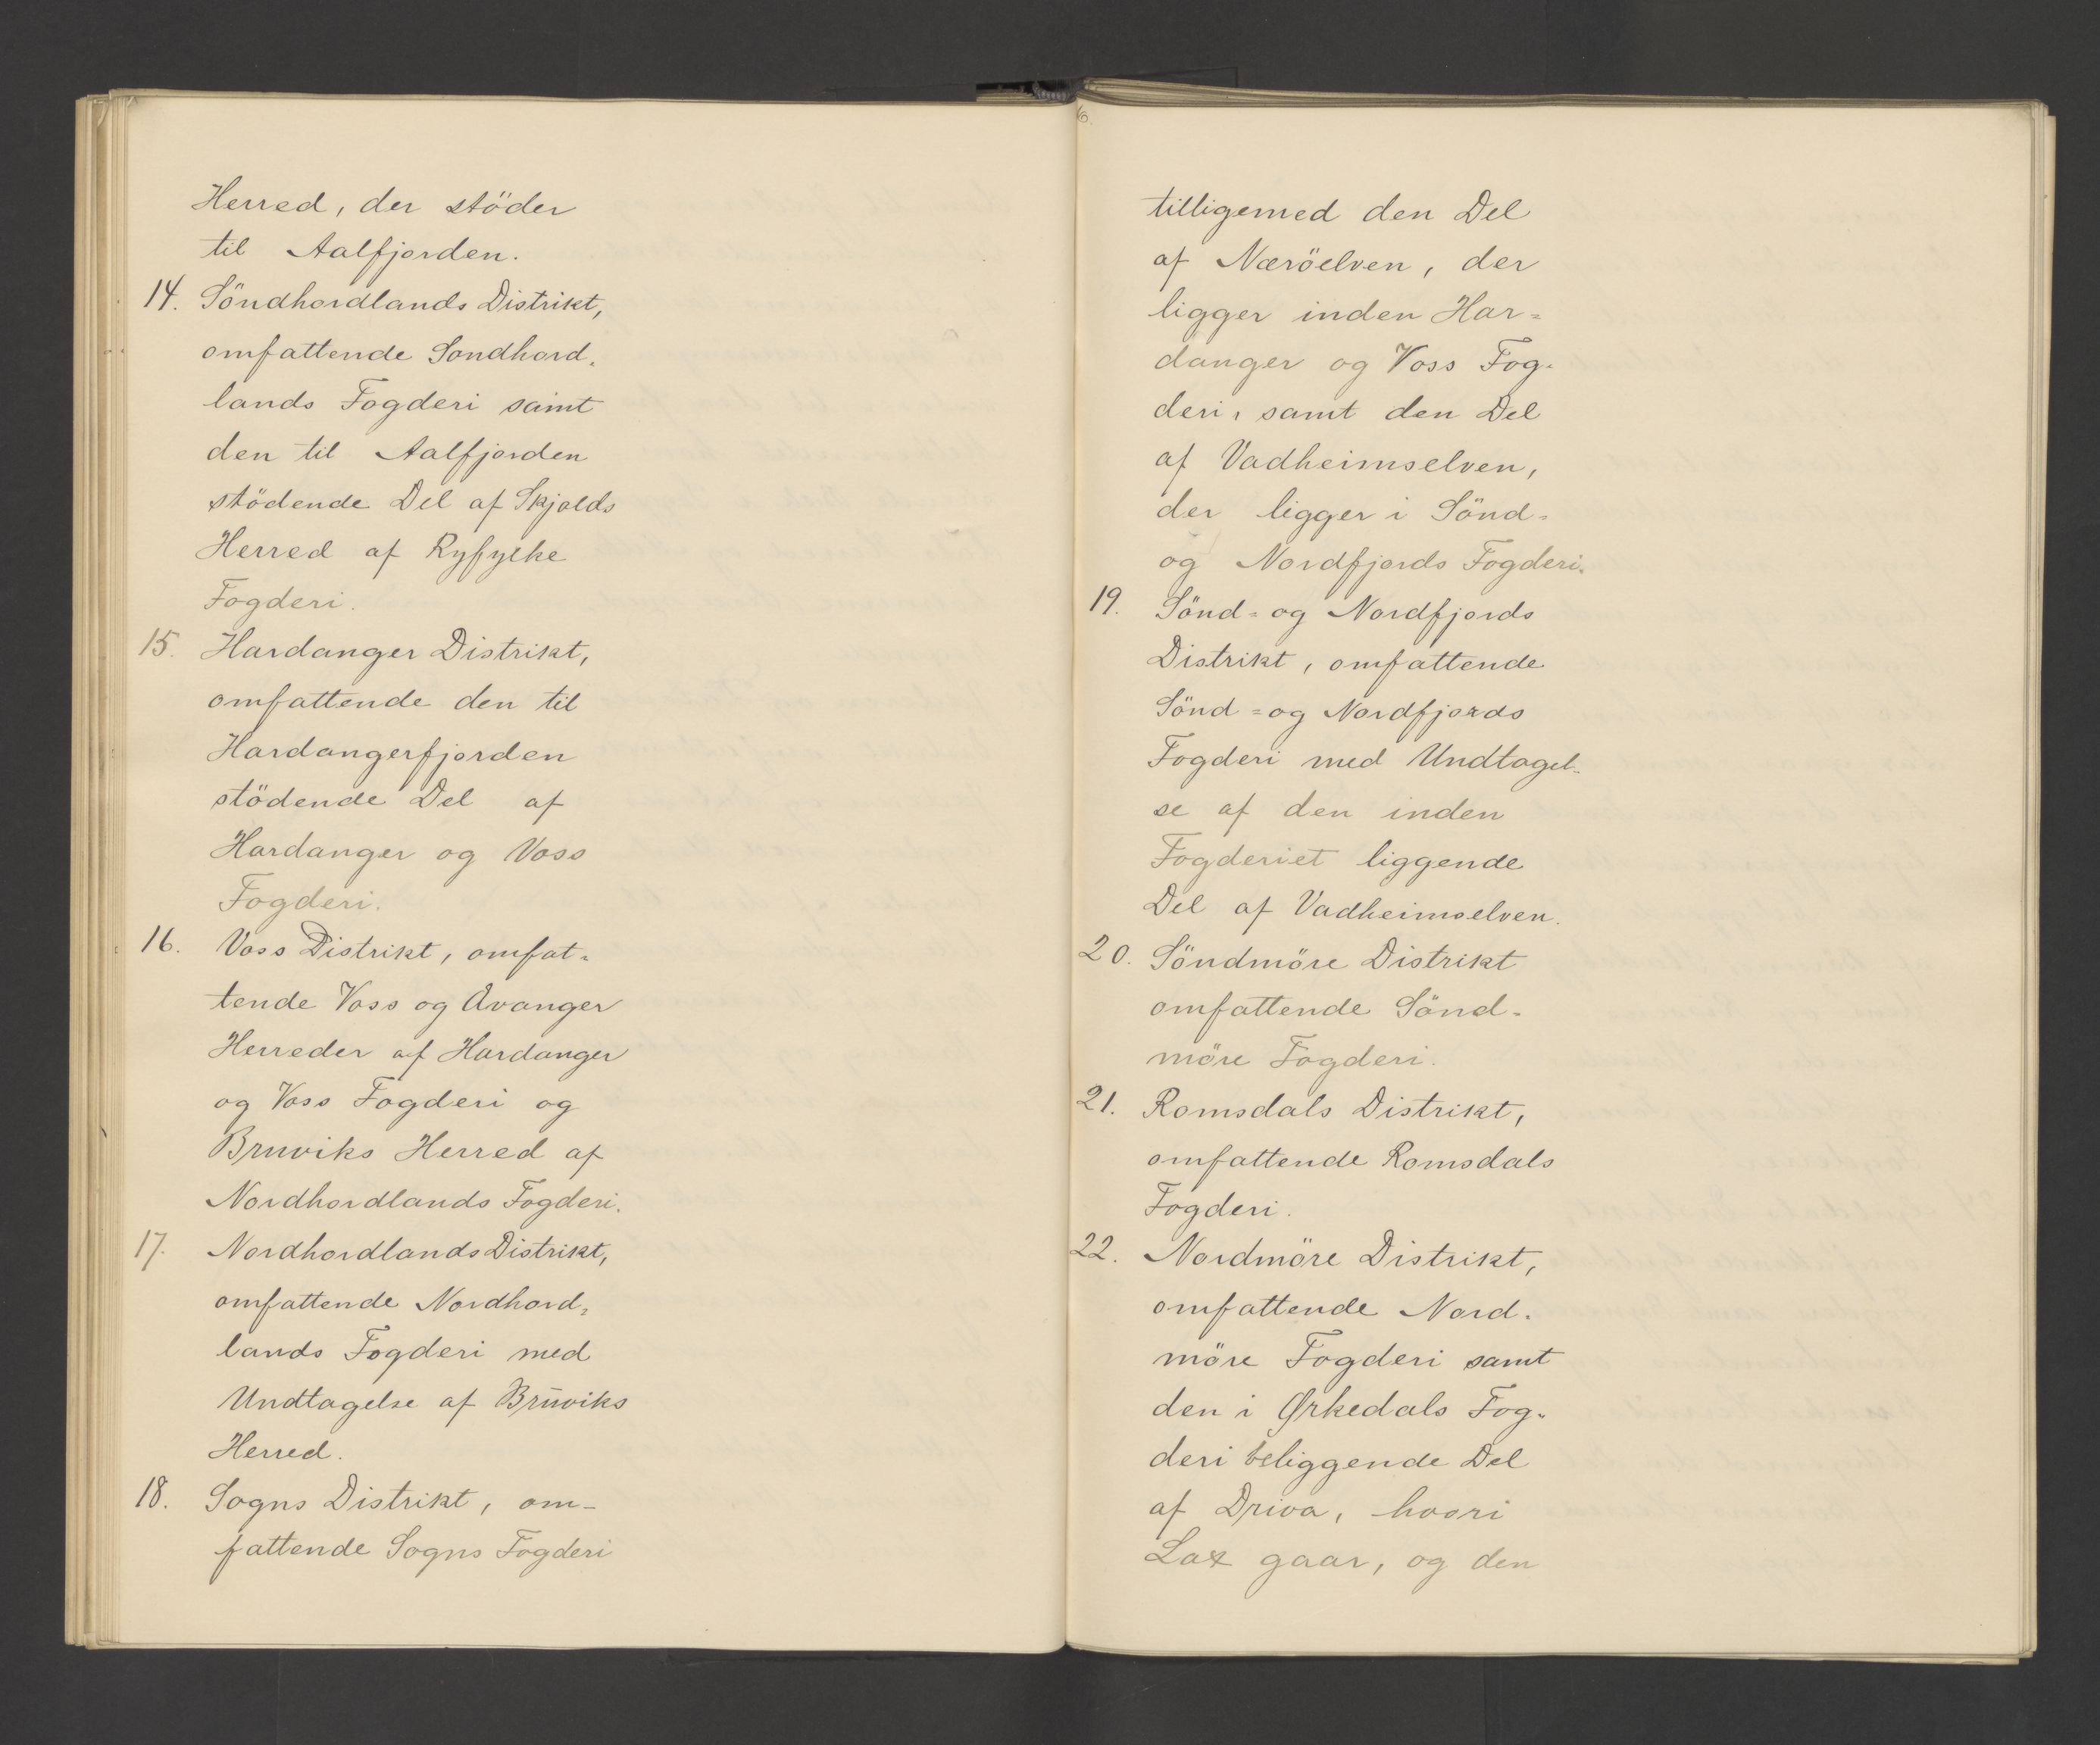 Herred, der stöder
til Aalfjorden.
14. Söndhordlands Distrikt,
omfattende Sondhord-
lands Fogderi samt
den til Aalfjorden
stödende Del af Skjolds
Herred af Ryfylke
Fogderi.
15. Hardanger Distrikt,
omfattende den til
Hardangerfjorden
stödende Del af
Hardanger og Voss
Fogderi.
16. Voss Distrikt, omfat-
tende Voss og Avanger
Herreder af Hardanger
og Voss Fogderi og
Bruviks Herred af
Nordhordlands Fogderi.
17. Nordhordlands Distrikt,
omfattende Nordhord-
lands Fogderi med
Undtagelse af Brüviks
Herred.
18. Sogns Distrikt, om-
fattende Sogns Fogderi
tilligemed den Del
af Næröelven, der
ligger inden Har=
danger og Voss Fog-
deri, samt den Del
af Vadheimselven,
der ligger i Sönd=
og Nordfjords Fogderi.
19. Sönd= og Nordfjords
Distrikt, omfattende
Sönd= og Nordfjords
Fogderi med Undtagel-
se af den inden
Fogderiet liggende
Del af Vadheimselven.
20. Söndmöre Distrikt
omfattende Sönd-
möre Fogderi.
21. Romsdals Distrikt,
omfattende Romsdals
Fogderi.
22. Nordmöre Distrikt,
omfattende Nord-
möre Fogderi samt
den i Ørkedals Fog-
deri beliggende Del
af Driva, hvori
Lax gaar, og den